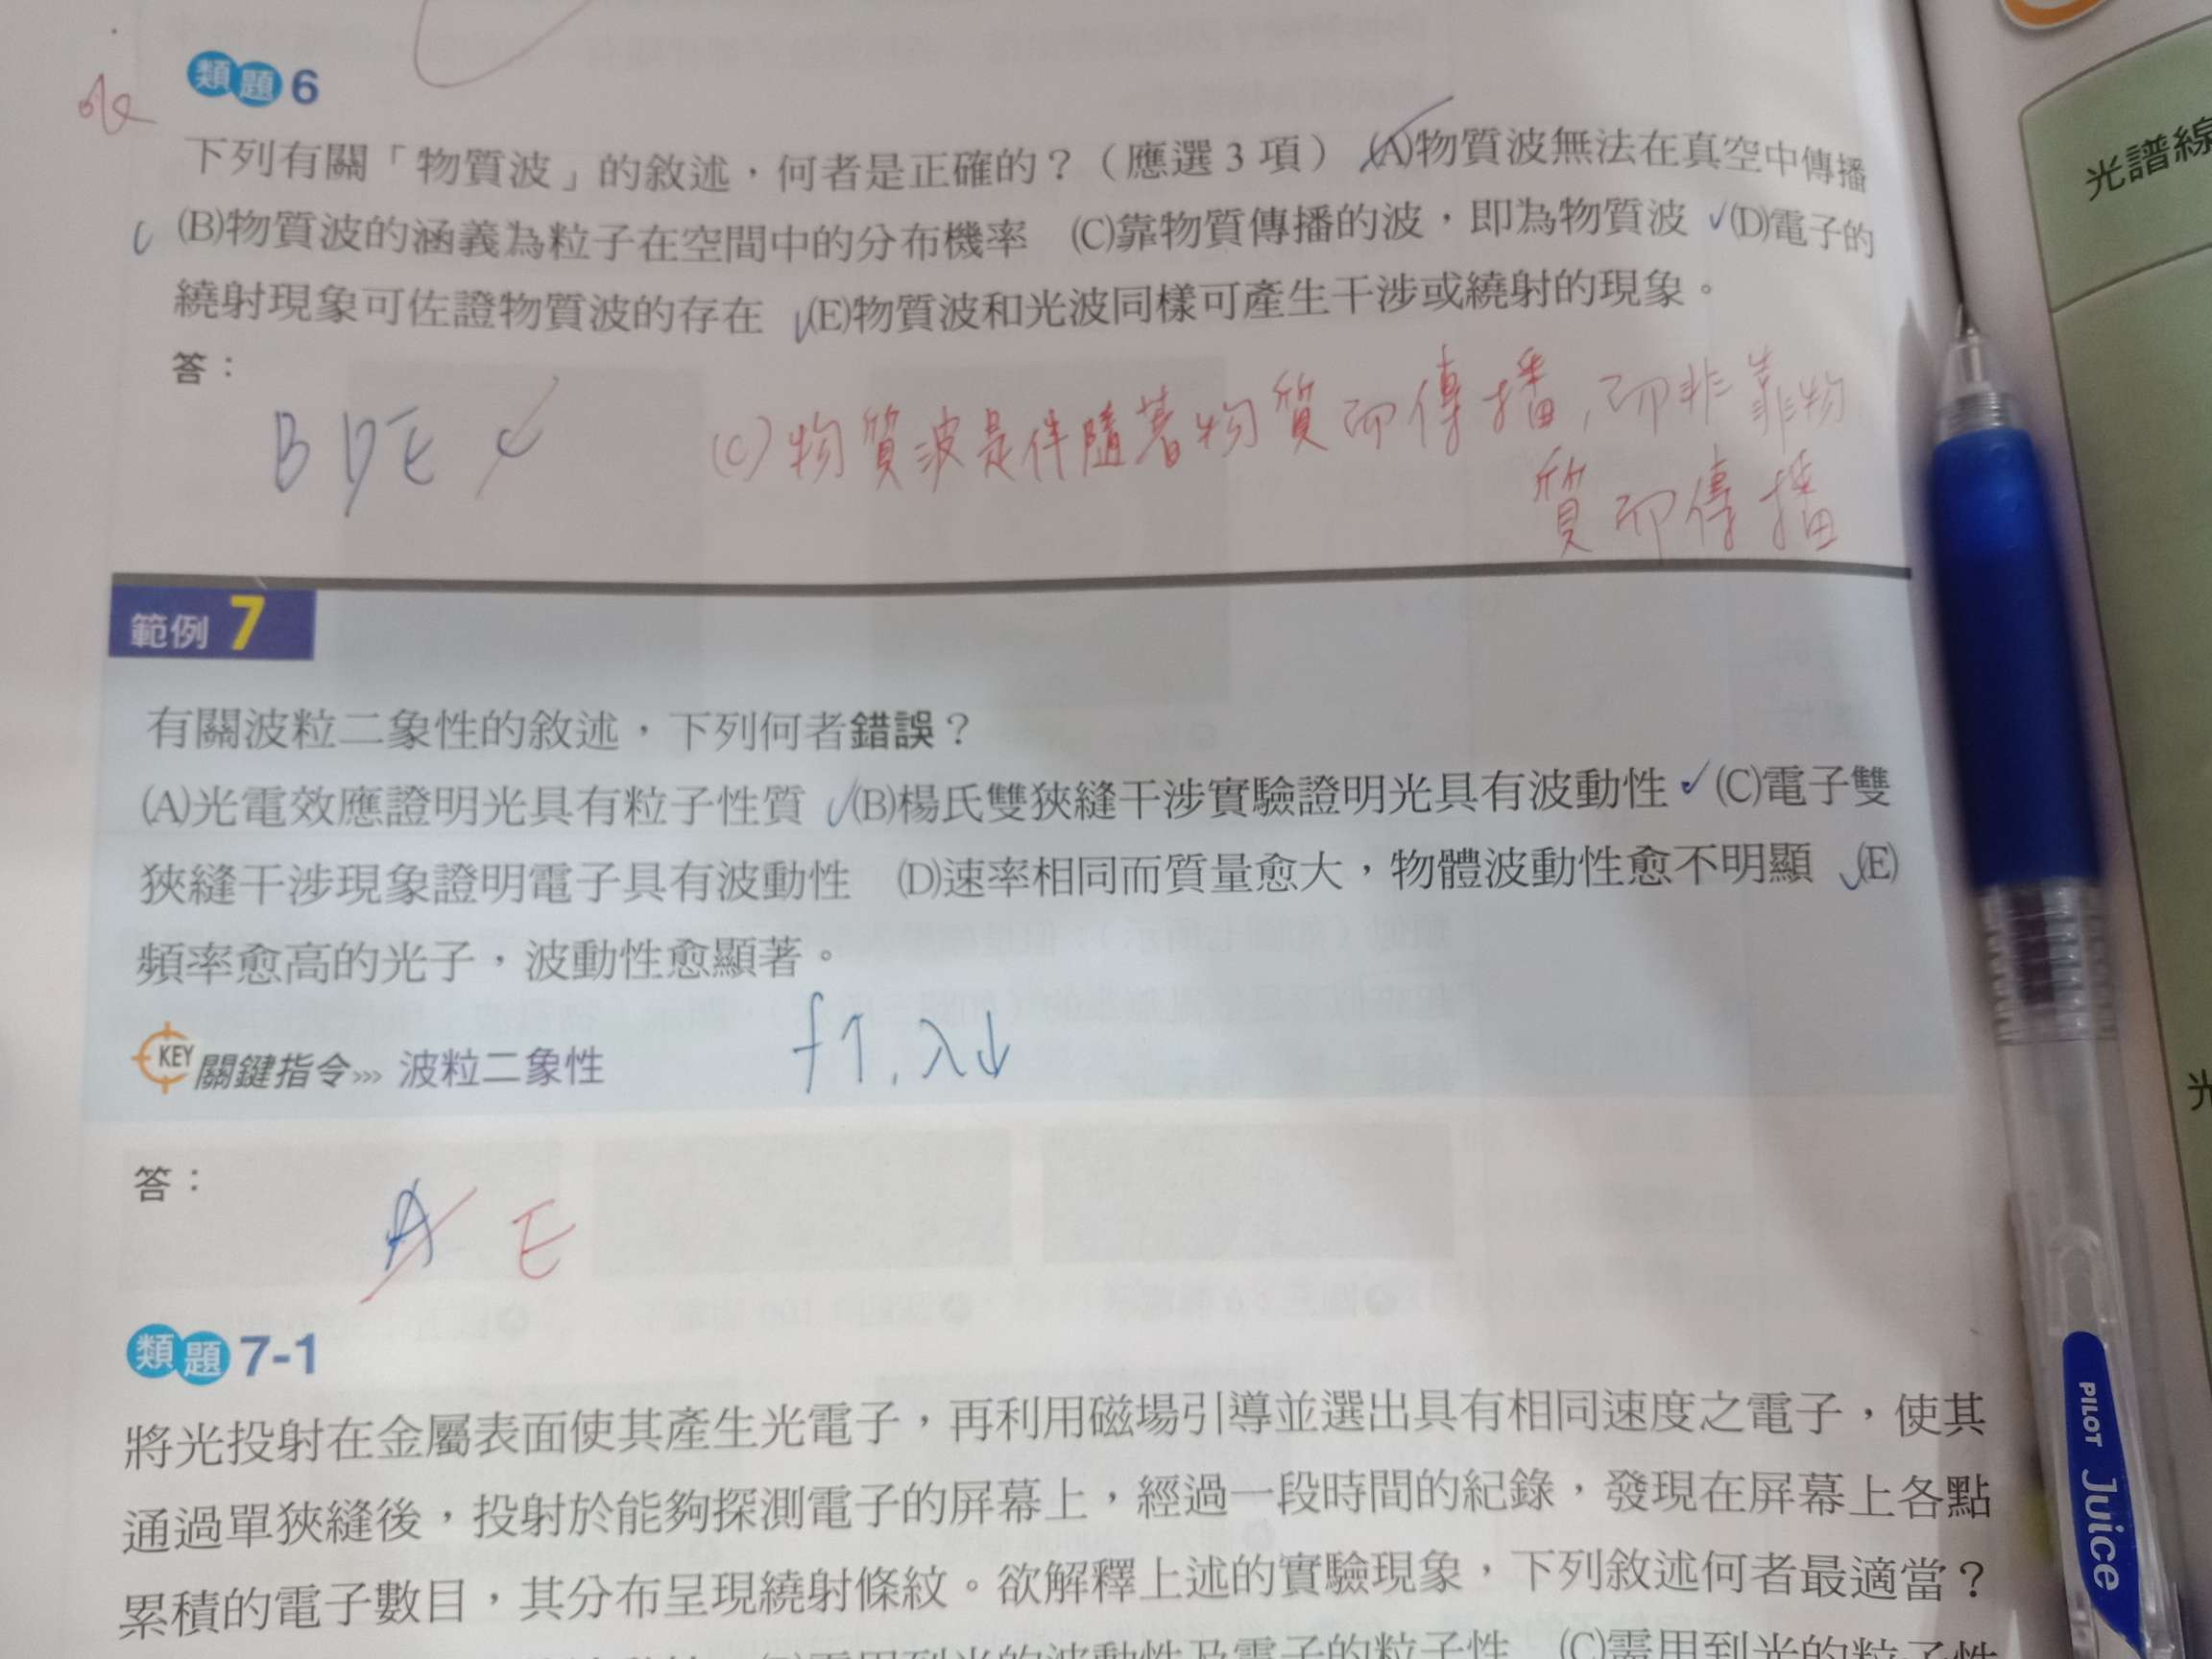 類題 6
下列有關「物質波」的敘述，何者是正確的？（應選 3 項） (A)物質波無法在真空中傳播
(B)物質波的涵義為粒子在空間中的分布機率 (C)靠物質傳播的波，即為物質波 ✓(D)電子的
繞射現象可佐證物質波的存在 ✓(E)物質波和光波同樣可產生干涉或繞射的現象。
答：
B D E ✓
(C)物質波是伴隨著物質而傳播，而非靠物
質而傳播
範例 7
有關波粒二象性的敘述，下列何者錯誤？
(A)光電效應證明光具有粒子性質 ✓(B)楊氏雙狹縫干涉實驗證明光具有波動性 ✓(C)電子雙
狹縫干涉現象證明電子具有波動性 (D)速率相同而質量愈大，物體波動性愈不明顯 ✓(E)
頻率愈高的光子，波動性愈顯著。
KEY 關鍵指令>>> 波粒二象性
f↑, λ↓
答：
A E
類題 7-1
將光投射在金屬表面使其產生光電子，再利用磁場引導並選出具有相同速度之電子，使其
通過單狹縫後，投射於能夠探測電子的屏幕上，經過一段時間的紀錄，發現在屏幕上各點
累積的電子數目，其分布呈現繞射條紋。欲解釋上述的實驗現象，下列敘述何者最適當？
需用到光的波動性及電子的粒子性 (C)需用到光的粒子性
光譜線
光
PILOT Juice